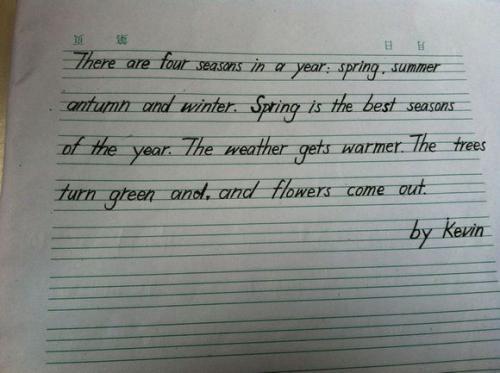 页 第 日 月
There are four seasons in a year: spring, summer
autumn and winter. Spring is the best seasons
of the year. The weather gets warmer. The trees
turn green and, and flowers come out.
by Kevin